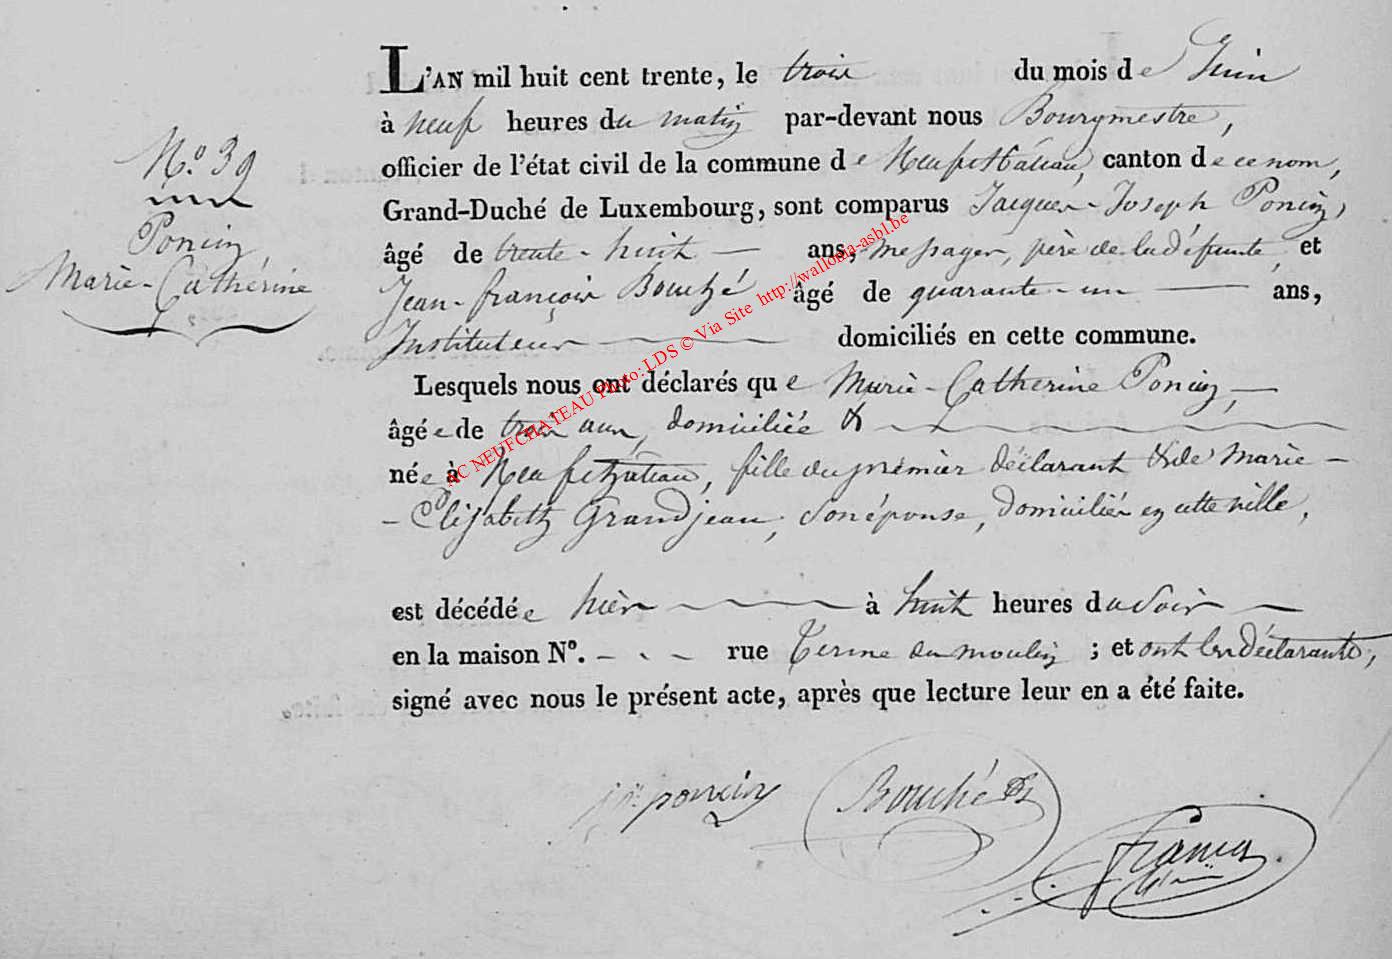 L'AN mil huit cent trente, le trois du mois de Juin
à neuf heures du matin par-devant nous Bourgmestre,
officier de l'état civil de la commune de Neufchâteau, canton de ce nom,
Grand-Duché de Luxembourg, sont comparus Jacques-Joseph Poncin,
âgé de trente-huit ans, messager, père de la défunte, et
Jean-françois Bouché âgé de quarante-un ans,
Instituteur domiciliés en cette commune.
Lesquels nous ont déclarés que Marie-Catherine Poncin,
âgée de trois ans, domiciliée &
née à Neufchâteau, fille du premier déclarant & de Marie-
-Elisabeth Grandjean, son épouse, domiciliés en cette ville,
est décédée hier à huit heures du soir
en la maison Nº. - - - rue Terme du moulin ; et ont les déclarants,
signé avec nous le présent acte, après que lecture leur en a été faite.
Nº 39
Poncin
Marie-Cathérine
AC NEUFCHATEAU Photo: LDS © Via Site http://wallonia-asbl.be
poncin
Bouché